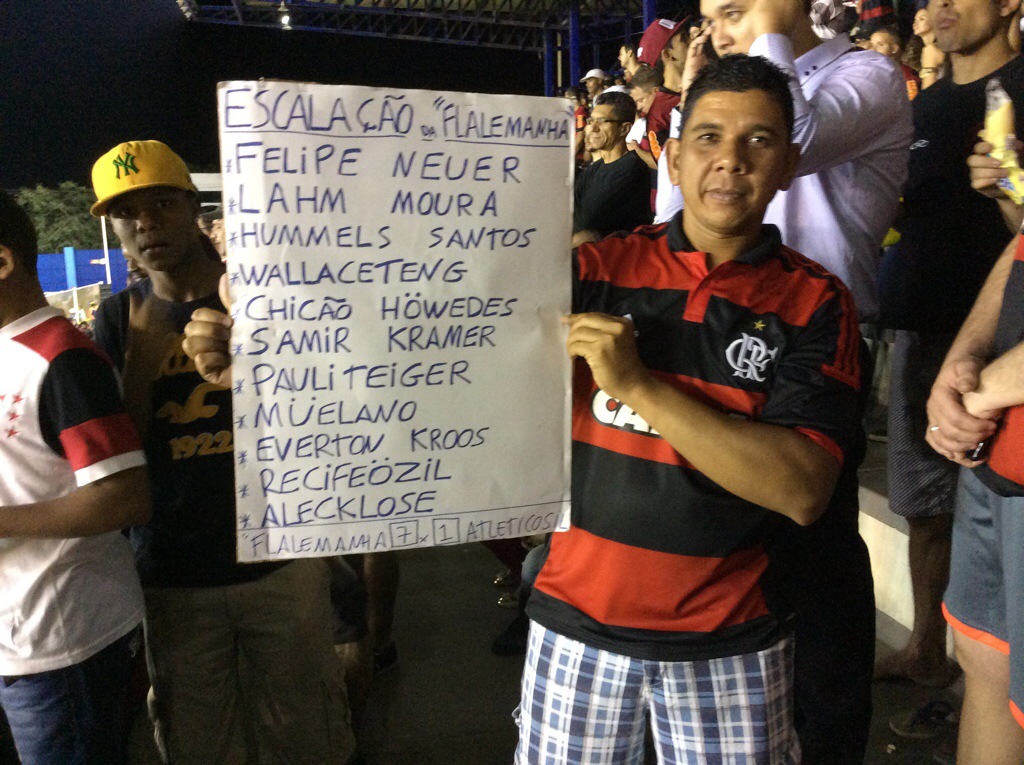 ESCALAÇÃO DA "FLALEMANHA"
* FELIPE NEUER
* LAHM MOURA
* HUMMELS SANTOS
* WALLACETENG
* CHICÃO HÖWEDES
* SAMIR KRAMER
* PAULITEIGER
* MÜELANO
* EVERTON KROOS
* RECIFEÖZIL
* ALECKLOSE
"FLALEMANHA 7 x 1 ATLETICOS
NY
1922
CRF